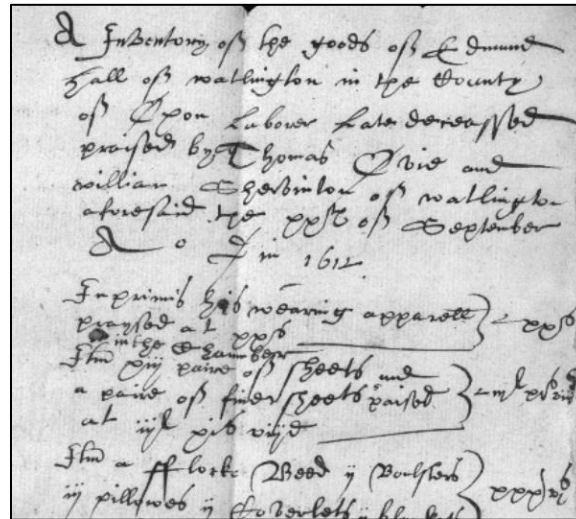 A Inventory of the goods of Edmund
hall of watlington in the County
of Oxon Laborer Late deceassed
praised by Thomas Ovie and
william Shervinton of watlington
aforesaid the xxth of September
A o D in 1612
Inprimis his wearing apparell
praysed at xxs xxs
in the Chamber
Itm xiij paire of sheets and
a paire of finer sheets praised
at iijl xiijs viijd
Itm a fflocke Beed ij Boulsters
iij pillowes ij Coverlets ij blankets